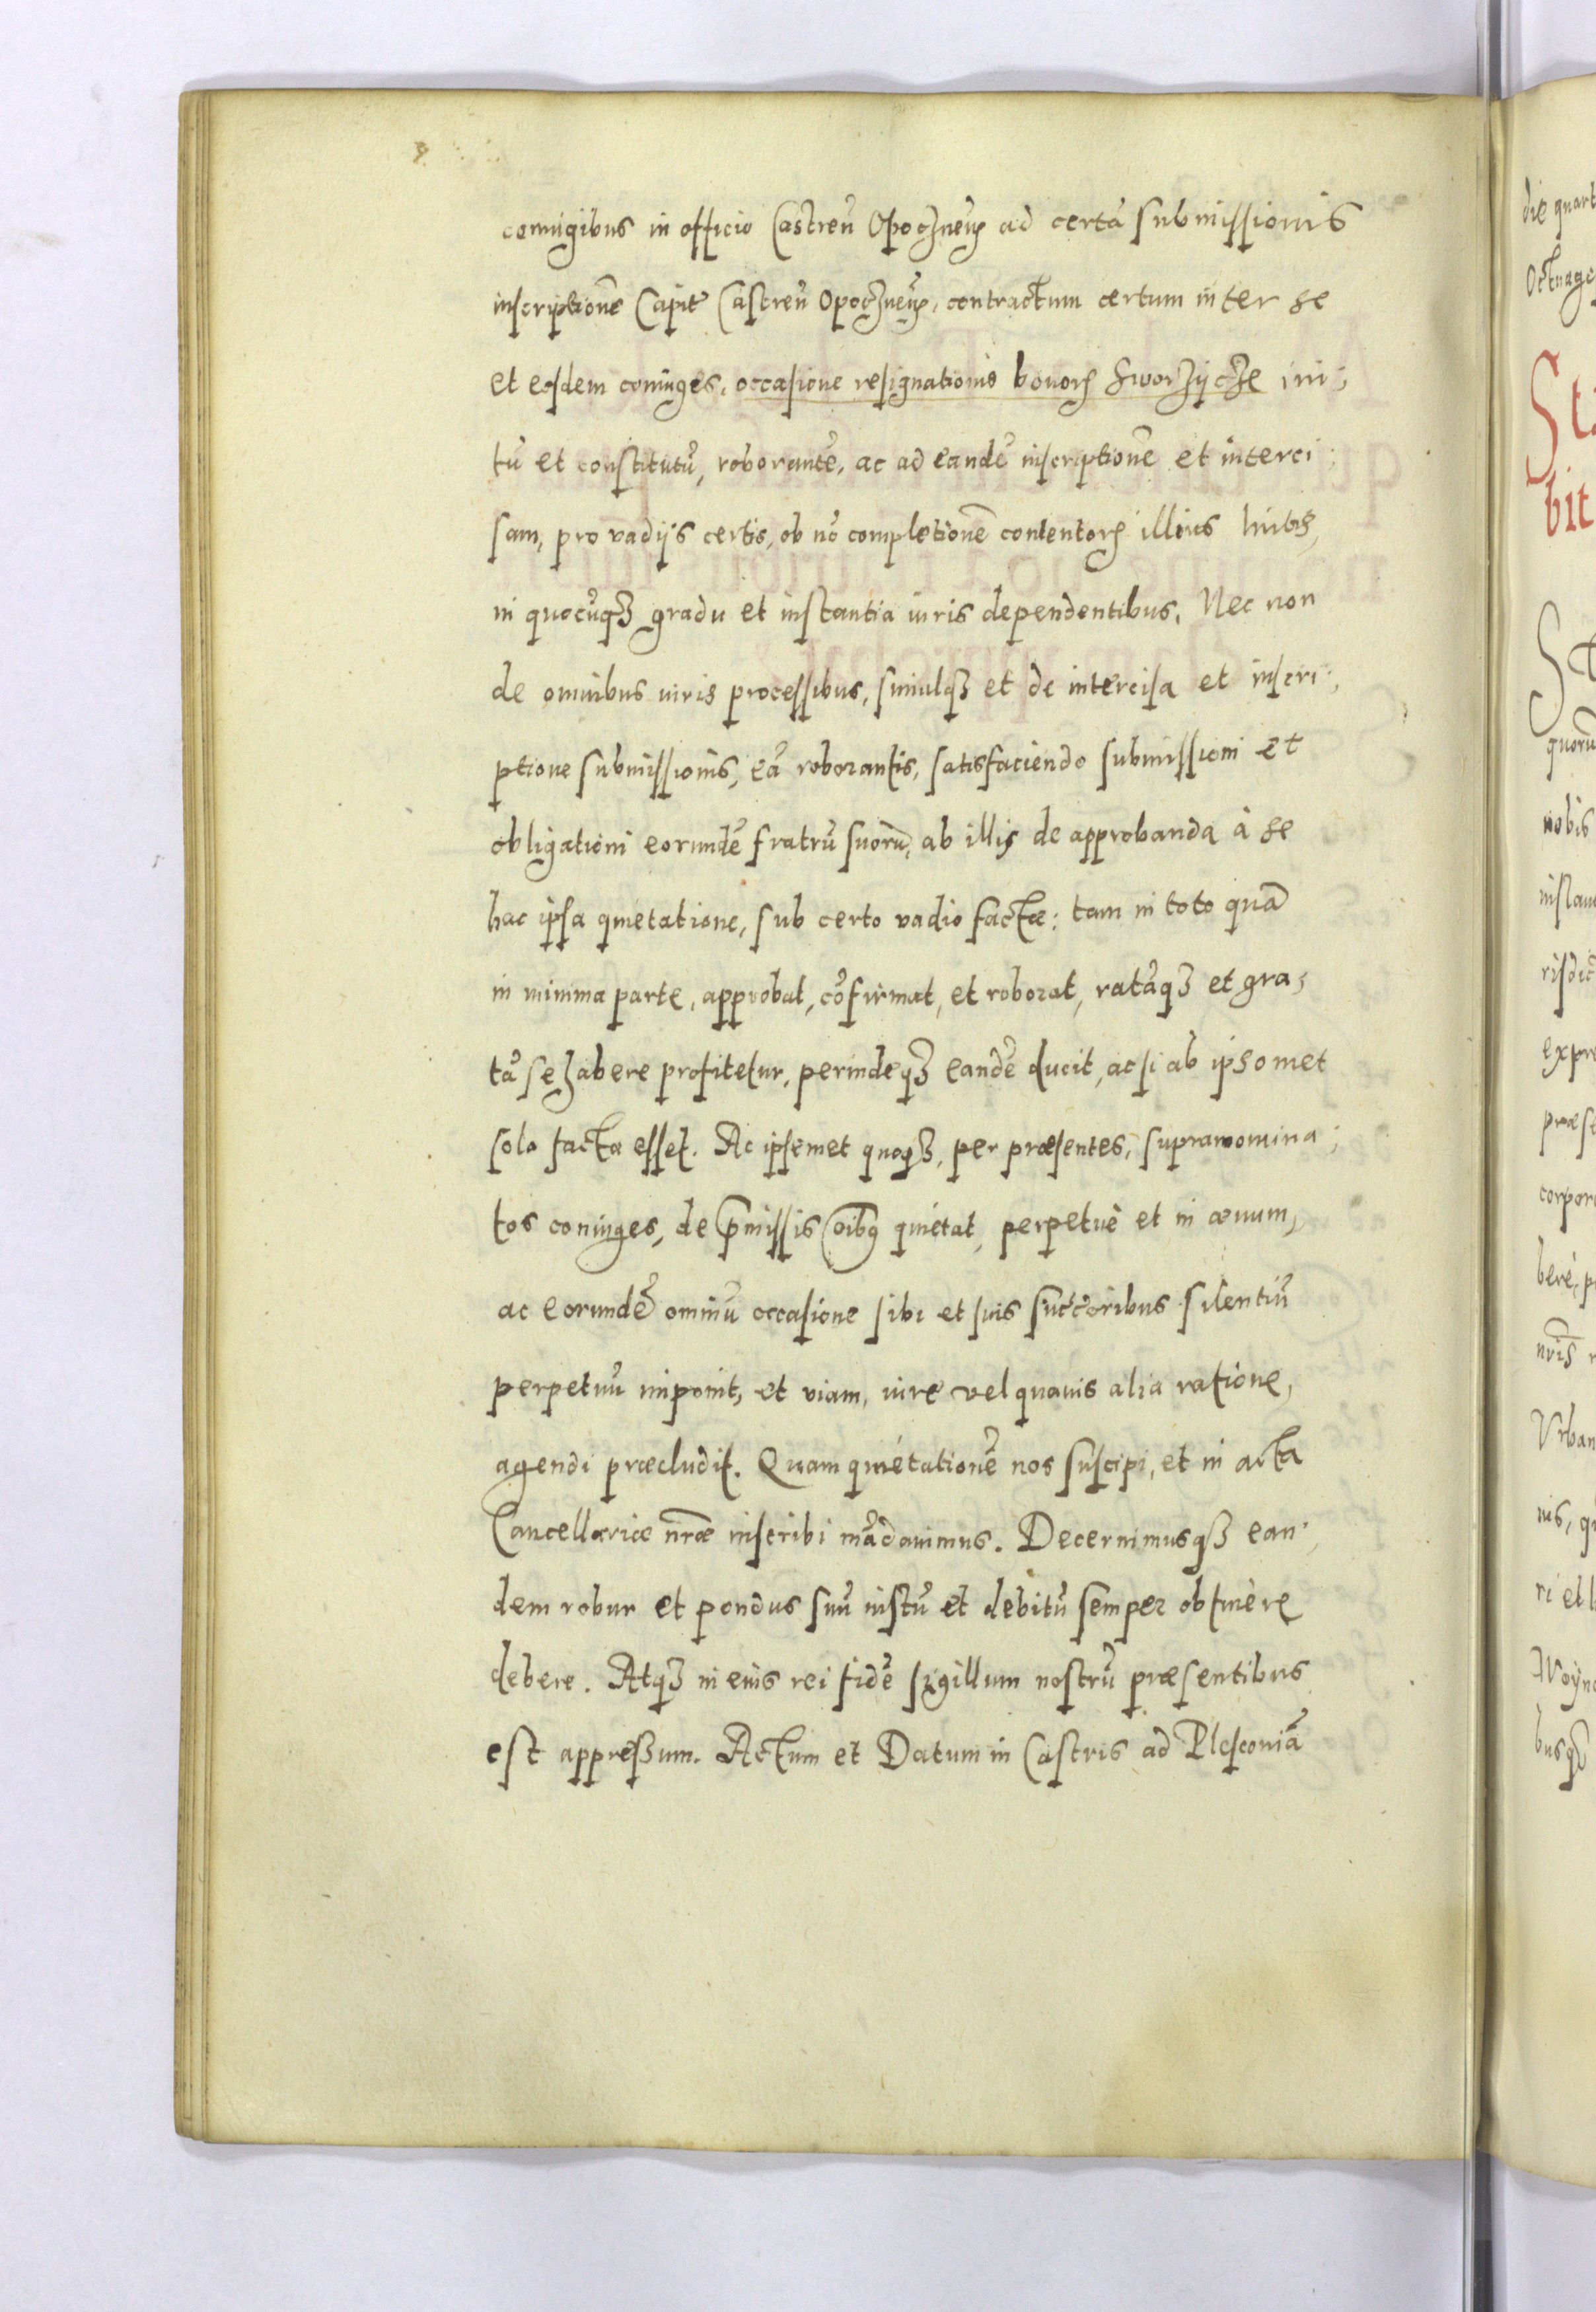 coniugibus in officio Castreñ Opocznen̄ ad certā submissionis
inscriptionē Capit̃ Castreñ Opocznen̄, contractum certum inter se
et eosdem coniuges, occasione resignationis bonorꝫ Sworzycze ini,
tū et constitutū, roborantē, ac ad eandē inscriptionē et interci,
sam, pro vadijs certis, ob nō completionē contentorꝫ illius
in quocūqꝫ gradu et instantia iuris dependentibus. Nec non
de omnibus iuris processibus, simulqꝫ et de intercisa et inscri,
ptione submissionis, eā roborantis, satisfaciendo submissioni et
obligationi eorundē fratrū suorū, ab illis de approbanda à se
hac ipsa quietatione, sub certo vadio factæ: tam in toto quā
in minima parte, approbat, cōfirmat, et roborat, ratāqꝫ et gra,
tā se habere profitetur, perindeqꝫ eandē ducit, ac si ab ipsomet
solo facta esset. Ac ipsemet quoqꝫ, per præsentes, supranomina,
tos coniuges, de p̄missis oībꝰ quietat, perpetuè et in æuum,
ac eorundē omniū occasione sibi et suis succ̃oribus silentiū
perpetuū imponit, et viam, iure vel quauis alia ratione,
agendi præcludit. Quam quietationē nos suscipi, et in acta
Cancellariæ nr̃æ inscribi mādauimus. Decernimusqꝫ ean,
dem robur et pondus suū iustū et debitū semper obtinere
debere. Atqꝫ in eius rei fidē sigillum nostrū præsentibus
est appressum. Actum et Datum in Castris ad Plesconiā
die quart
Octuage
Sta
bit
St
quorū
nobis
instan
risdic̄
expre
præse
corpor
berè, p
nr̄is
Vrban
nis, q
ri et
Woyn
busqꝫ